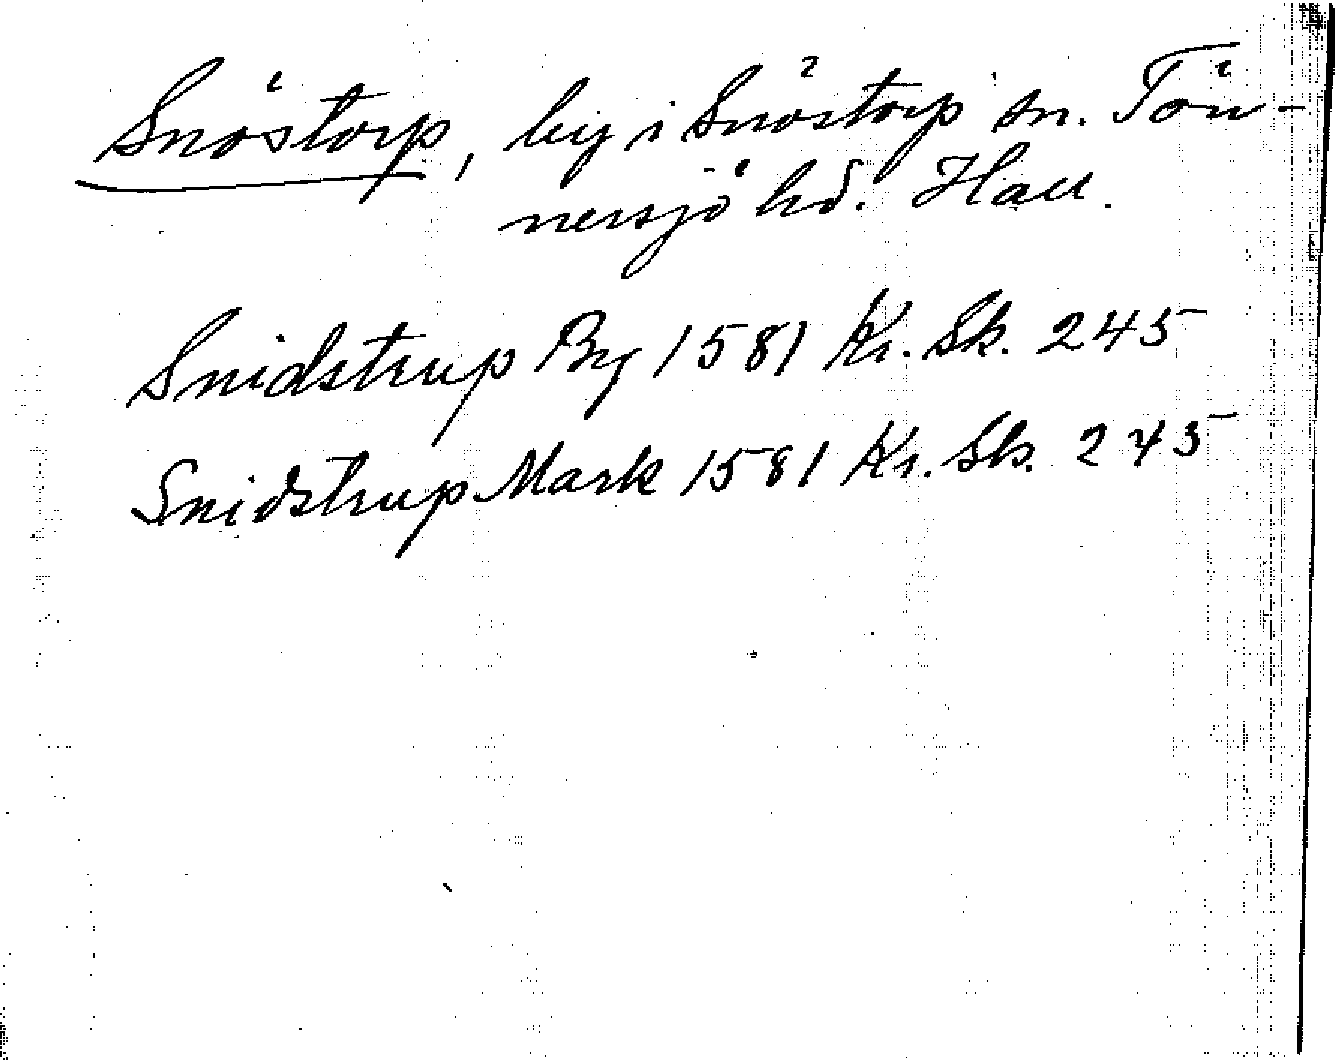 Snöstorp, by i Snöstorp sn. Tön-
nersjö hd. Hall.
Snidstrup By 1581 Kr. Sk. 245
Snidstrup Mark 1581 Kr. Sk. 245